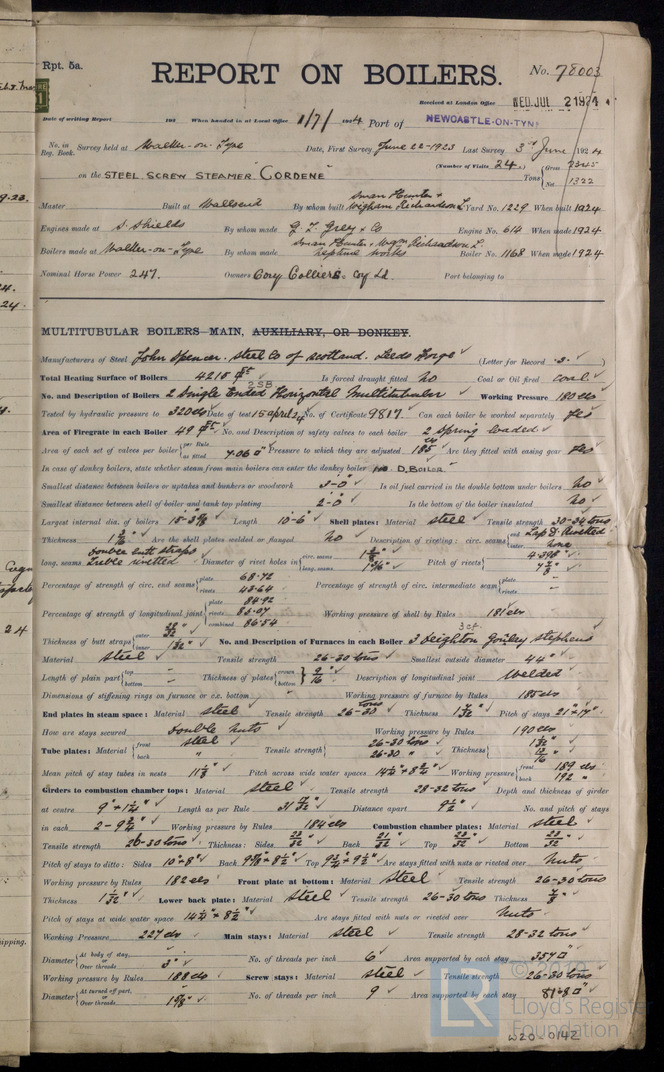 Rpt. 5a.
REPORT ON BOILERS.
No. 78003
Received at London Office WED. JUL 2 1924
Date of writing Report 191 When handed in at Local Office 1/7/ 1924 Port of NEWCASTLE-ON-TYNE
No. in Reg. Book. Survey held at Walker-on-Tyne Date, First Survey June 22-1923 Last Survey 3rd June 1924
(Number of Visits 24)
on the STEEL SCREW STEAMER "CORDENE" Tons Gross Net 1322
Master Built at Wallsend By whom built Swan Hunter & Wigham Richardson L. Yard No. 1229 When built 1924
Engines made at S. Shields By whom made G. T. Grey & Co Engine No. 614 When made 1924
Boilers made at Walker-on-Tyne By whom made Swan Hunter & Wigm Richardson L. Neptune Works Boiler No. 1168 When made 1924
Nominal Horse Power 247. Owners Cory Colliers Ld Port belonging to
MULTITUBULAR BOILERS MAIN, AUXILIARY, OR DONKEY.
Manufacturers of Steel John Spencer. Steel Co of Scotland. Leeds Forge (Letter for Record S.)
Total Heating Surface of Boilers 4215 Is forced draught fitted No Coal or Oil fired coal
2SB
No. and Description of Boilers 2 Single Ended Horizontal Multitubular Working Pressure 180 lbs
Tested by hydraulic pressure to 320 lbs Date of test 15 April 24 No. of Certificate 9817 Can each boiler be worked separately Yes
Area of Firegrate in each Boiler 49 No. and Description of safety valves to each boiler 2 Spring loaded
Area of each set of valves per boiler per Rule as fitted 7.06 Pressure to which they are adjusted 185 lbs Are they fitted with easing gear Yes
In case of donkey boilers, state whether steam from main boilers can enter the donkey boiler No D. BOILER
Smallest distance between boilers or uptakes and bunkers or woodwork 3'-0" Is oil fuel carried in the double bottom under boilers No
Smallest distance between shell of boiler and tank top plating 2'-0" Is the bottom of the boiler insulated No
Largest internal dia. of boilers Length 10'-6" Shell plates: Material steel Tensile strength 30-34 tons
Thickness Are the shell plates welded or flanged No Description of riveting: circ. seams end Lap D. Riveted inter. None
long. seams Double butt straps Treble riveted Diameter of rivet holes in circ. seams long. seams Pitch of rivets 4.398"
Percentage of strength of circ. end seams plate 68.72 rivets 43.64 Percentage of strength of circ. intermediate seam plate - rivets -
Percentage of strength of longitudinal joint plate 84.92 rivets 85.07 combined 86.54 Working pressure of shell by Rules 181 lbs
Thickness of butt straps outer inner No. and Description of Furnaces in each Boiler 3 Deighton 3 of Gourley Stephens
Material steel Tensile strength 26-30 tons Smallest outside diameter 44"
Length of plain part top - bottom - Thickness of plates crown bottom 9/16" Description of longitudinal joint Welded
Dimensions of stiffening rings on furnace or c.c. bottom - Working pressure of furnace by Rules 185 lbs
End plates in steam space: Material steel Tensile strength 26-30 tons Thickness Pitch of stays 21" x 17"
How are stays secured Double Nuts Working pressure by Rules 190 lbs
Tube plates: Material front steel back " Tensile strength 26-30 tons 26-30 " Thickness
Mean pitch of stay tubes in nests Pitch across wide water spaces Working pressure front 189 lbs back 192 "
Girders to combustion chamber tops: Material steel Tensile strength 28-32 tons Depth and thickness of girder
at centre Length as per Rule Distance apart 9½" No. and pitch of stays
in each Working pressure by Rules 184 lbs Combustion chamber plates: Material steel
Tensile strength 26-30 tons Thickness: Sides 23/32 Back 21/32 Top 23/32 Bottom 23/32
Pitch of stays to ditto: Sides 10" x 8" Back Top Are stays fitted with nuts or riveted over Nuts
Working pressure by Rules 182 lbs Front plate at bottom: Material steel Tensile strength 26-30 tons
Thickness Lower back plate: Material steel Tensile strength 26-30 tons Thickness 7/8"
Pitch of stays at wide water space Are stays fitted with nuts or riveted over Nuts
Working Pressure 227 lbs Main stays: Material steel Tensile strength 28-32 tons
Diameter At body of stay, or Over threads 3" No. of threads per inch 6 Area supported by each stay 357
Working pressure by Rules 188 lbs Screw stays: Material steel Tensile strength 26-30 tons
Diameter At turned off part, or Over threads 1⅝" No. of threads per inch 9 Area supported by each stay
LR
Lloyd's Register
Foundation
W20-0142